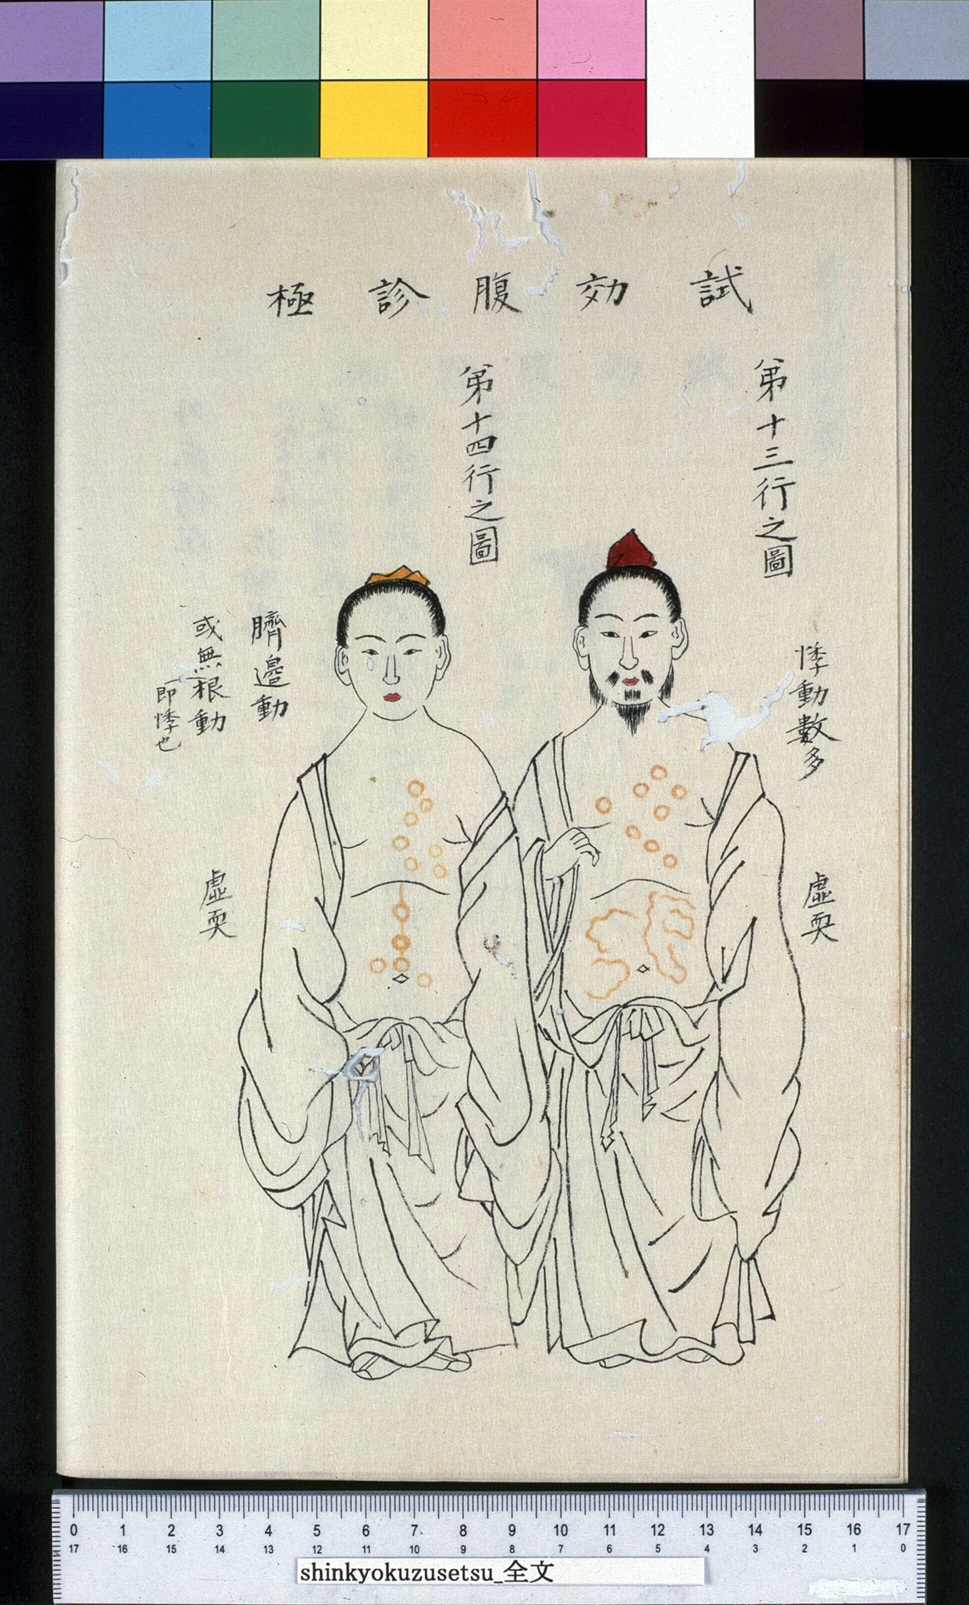 試効腹診極
第十三行之圖
悸動數多
虛耎
第十四行之圖
臍邉動
或無根動
即悸也
虛耎
0 1 2 3 4 5 6 7 8 9 10 11 12 13 14 15 16 17
17 16 15 14 13 12 11 10 9 8 7 6 5 4 3 2 1 0
shinkyokuzusetsu_全文